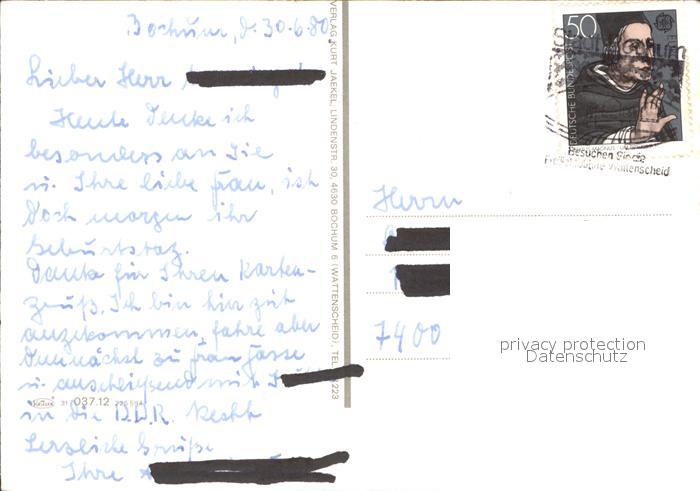 Bochum, d. 30.6.80
Lieber Herr
Heute denke ich
besonders an Sie
u. Ihre liebe Frau, ist
doch morgen ihr
Geburtstag.
Danke für Ihren Karten-
gruß. Ich bin hier gut
angekommen, fahre aber
demnächst zu Frau Gasse
u. anschließend mit
in die D.D.R. Recht
herzliche Grüße
Ihre
31 037.12
VERLAG KURT JAEKEL, LINDENSTR. 30, 4630 BOCHUM 6 (WATTENSCHEID), TEL. 223
50
DEUTSCHE BUNDESPOST
Besuchen Sie die
Freilichtbühne Wattenscheid
Herrn
7400
privacy protection
Datenschutz